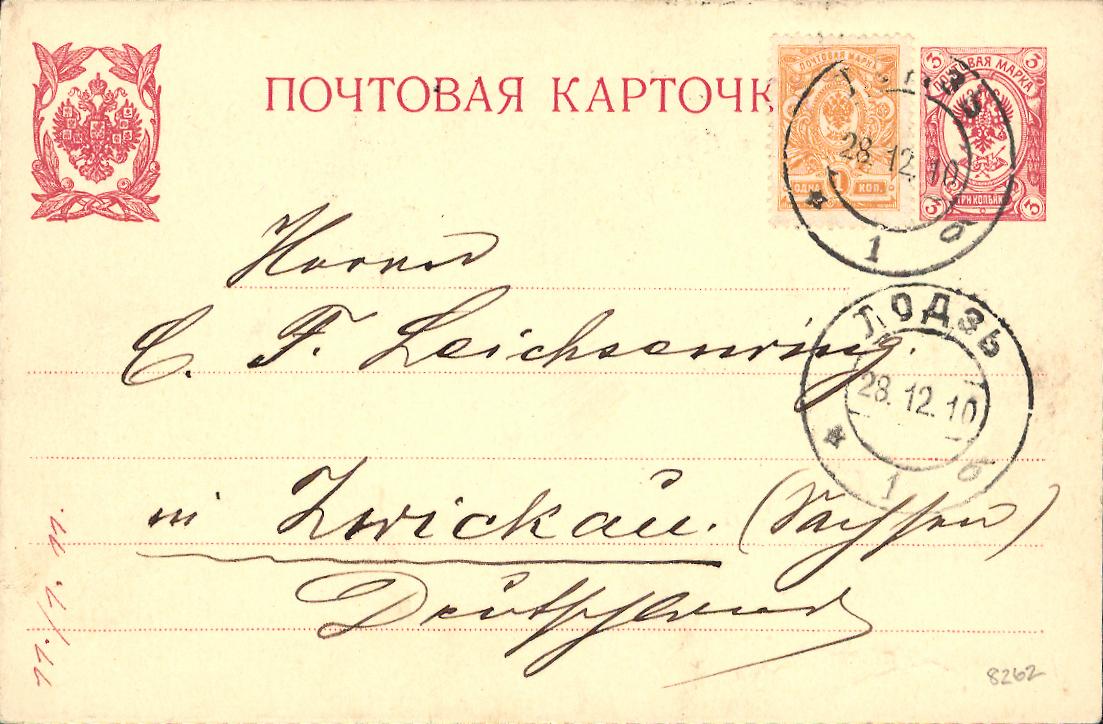 ПОЧТОВАЯ КАРТОЧК
ПОЧТОВАЯ МАРКА
ОДНА 1 КОП.
3 3
ВАЯ МАРКА
ТРИ КОПѢЙК
3 3
28.12.10
1 б
Herrn
C. F. Leichsenring.
ЛОДЗЬ
28.12.10
1 б
in Zwickau. (Sachsen)
Deutschland
8262